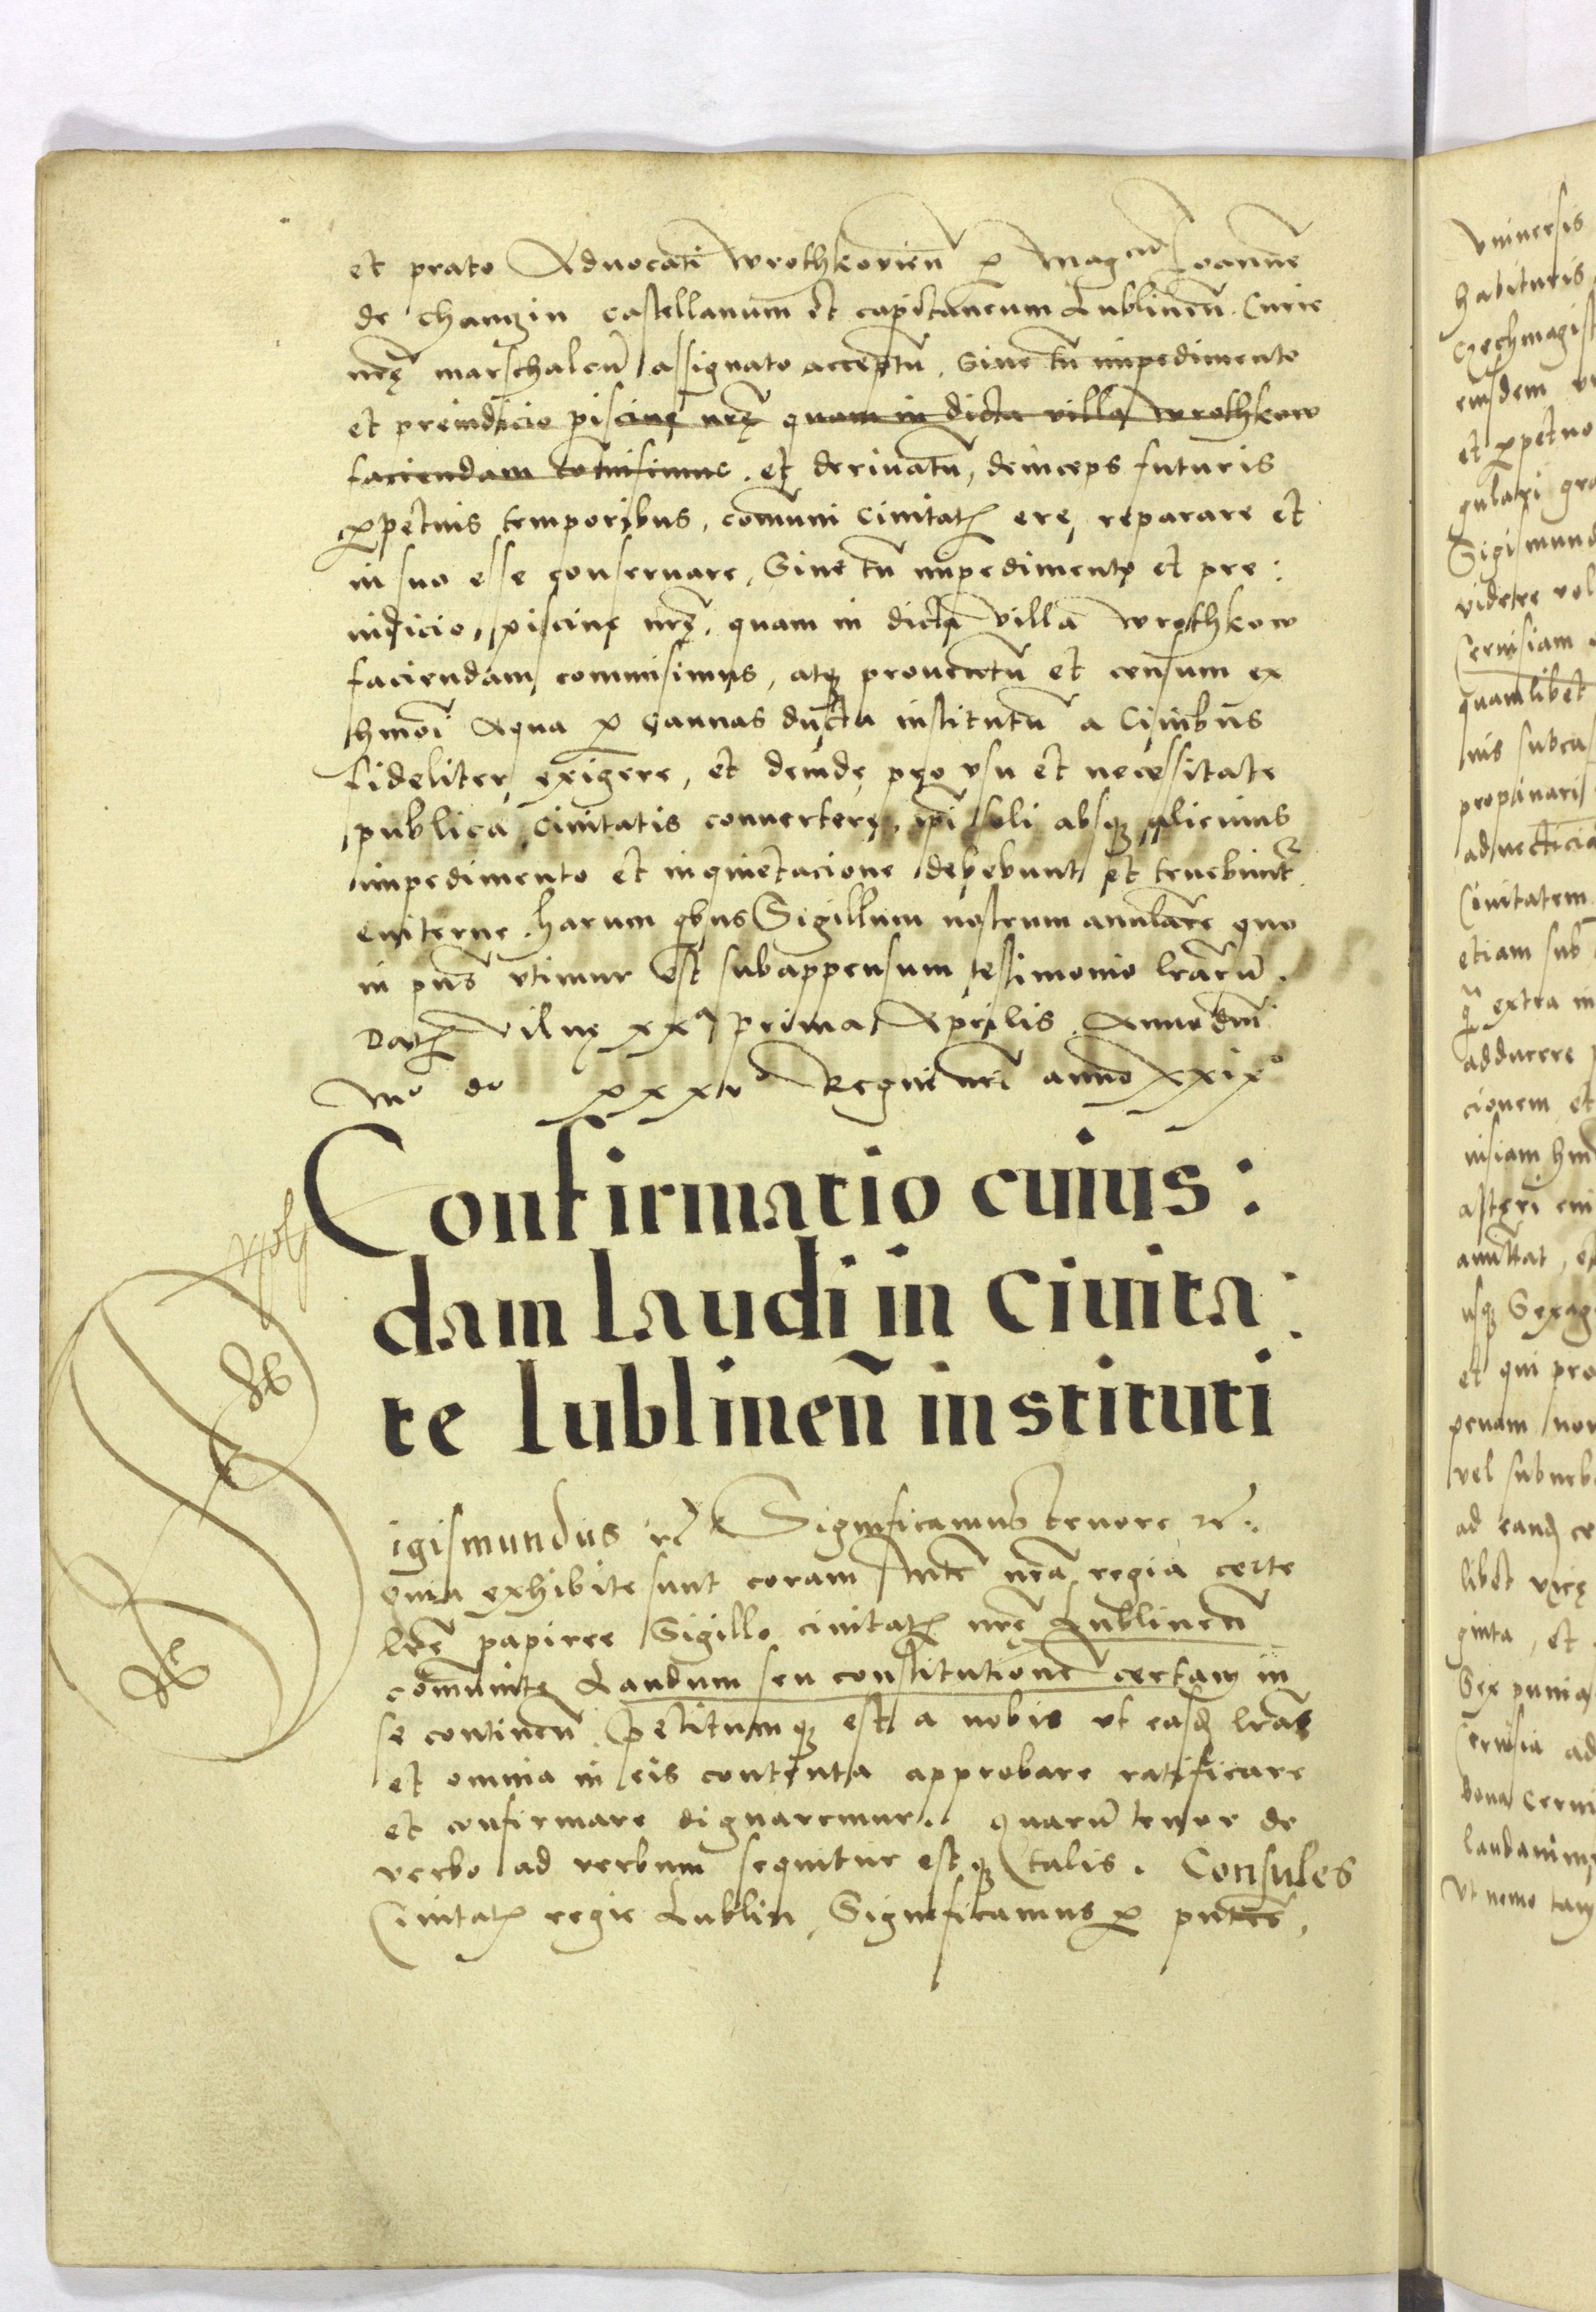 et prato Aduocati Wrothkovień p Mag^cum Ioannē
de Thanczin castellanum et capitaneum Lublineń. Curie
nrę marschalcū assignato acceptū. Sine tn̄ impedimento
et preiudicio piscinę nrę quam in dicta villa Wrothkow
faciendam cōmisimus. et deriuatū, deinceps futuris
ppetuis temporibus, comuni Ciuitatz ere, reparare et
in suo esse conseruare, Sine tn̄ impedimento et pre:
iudicio, piscinę nrę, quam in dicta villa Wrothkow
faciendam commisimus, atqz prouentū et censum ex
hmōi Aqua p cannas ducta institutū a Ciuibus
fideliter, exigere, et deinde pro vsu et necessitate
publica Ciuitatis conuertere, ipi soli absqz alicuius
impedimento et inquietacione debebunt et tenebunt
euiterne. harum qbus Sigillum nostrum anulare quo
in pns̄ vtimur est subappensum testimonio lrarū.
Datz Vilnę XX^a prima Aprilis. Anno dni
M^o d^o XXXV^o Regni nri anno XXIX^o
Confirmatio cuius:
dam laudi in Ciuita:
te Lublineñ instituti
Sigismundus rc Significamus tenore rc.
Quia exhibite sunt coram Mte nra regia certe
lrę papiree Sigillo ciuitatz nrę Lublineń
cōmunite Laudum seu constitutionē certam in
se continen̄. Petitumqz est a nobis ut easdz lras
et omnia in eis contenta approbare ratificare
et confirmare dignaremur. Quarū tenor de
verbo ad verbum sequitur estqz talis. Consules
Ciuitatz regie Lublin, Significamus p pntes,
Vniuersis
habituris
Czechmagist
eiusdem
et ppetuo
gulari gra
Sigismund
videre vol
Ceruisiam
quamlibet
propinari
aduecticia
Ciuitatem
etiam sub
extra in
adducere
cionem et
uisiam hm
asteri
usqz Sexag
et qui pro
penam non
vel suburb
ad eandz
libet vice
ginta, et
Sex
Ceruisia ad
bona Cerui
laudamus
Vt nemo tam